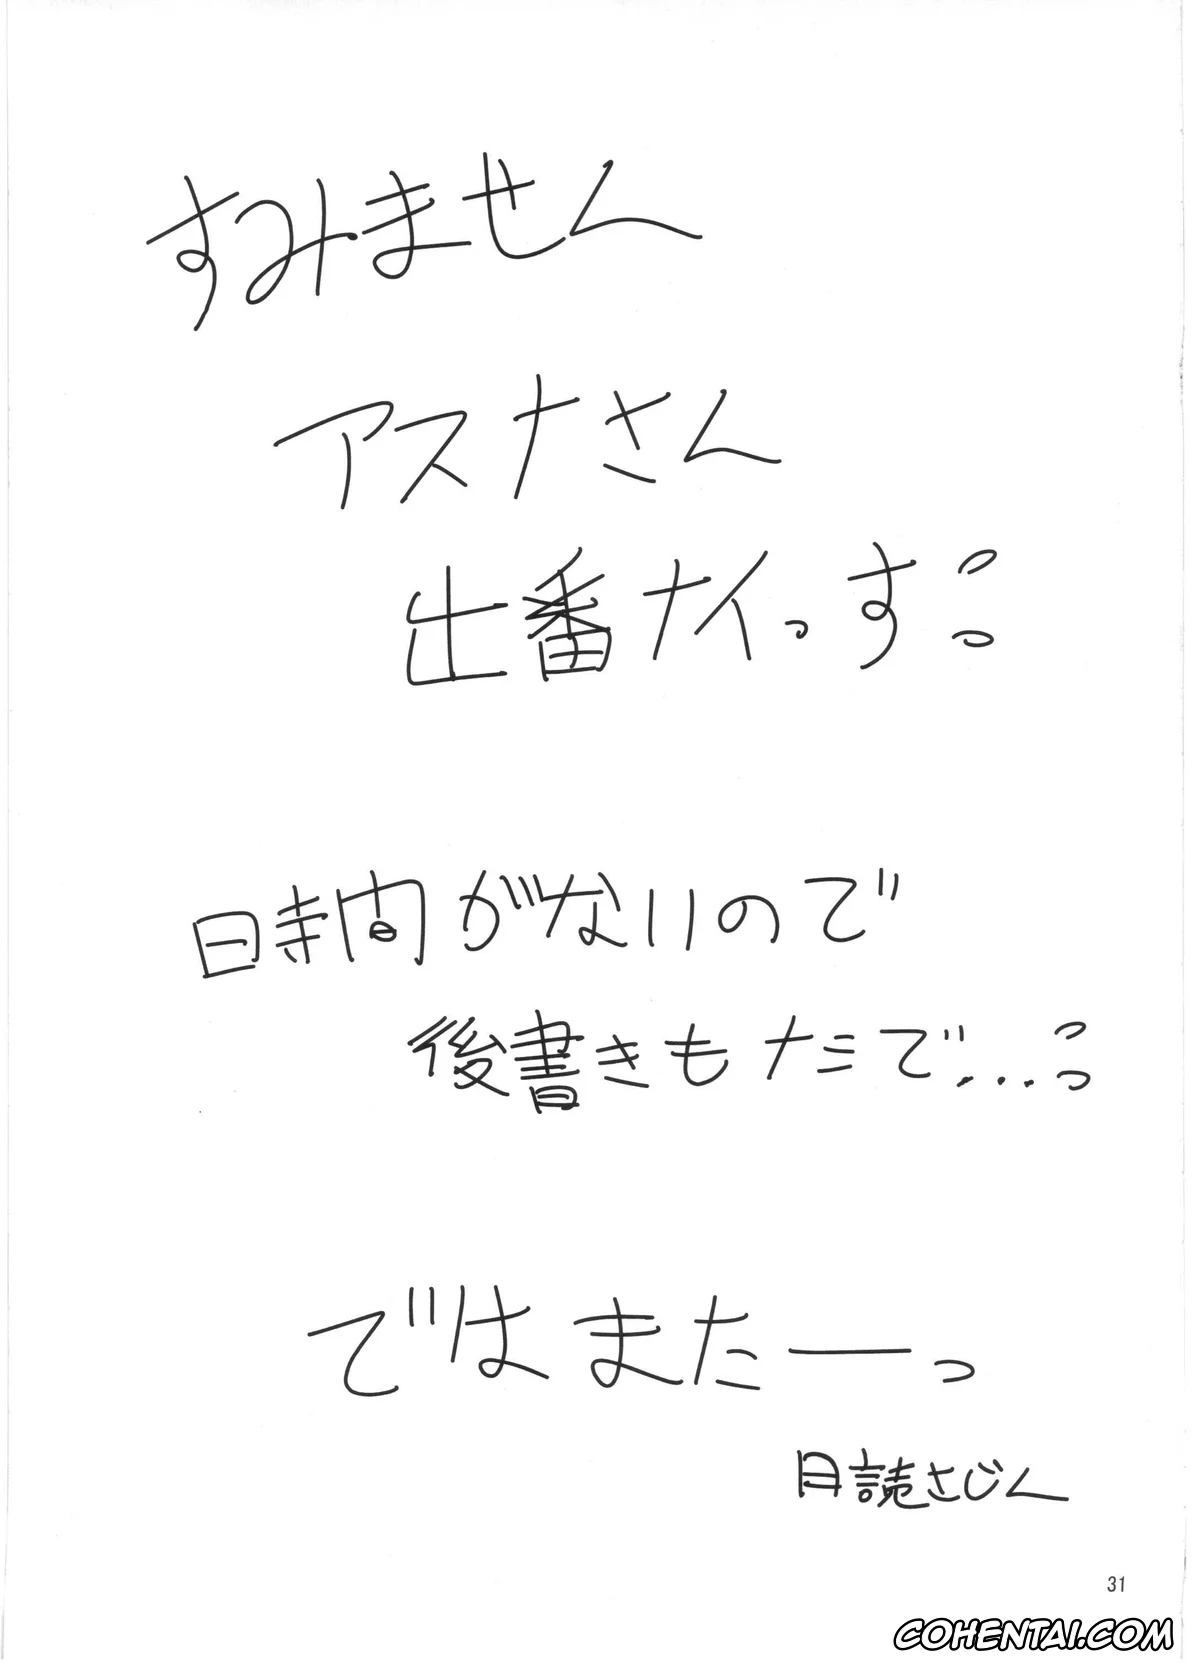 すみません
アスナさん
出番ナイっすっっ
時間がないので
後書きもナミで...っっ
ではまたーっ
月読さじん
31
COHENTAI.COM